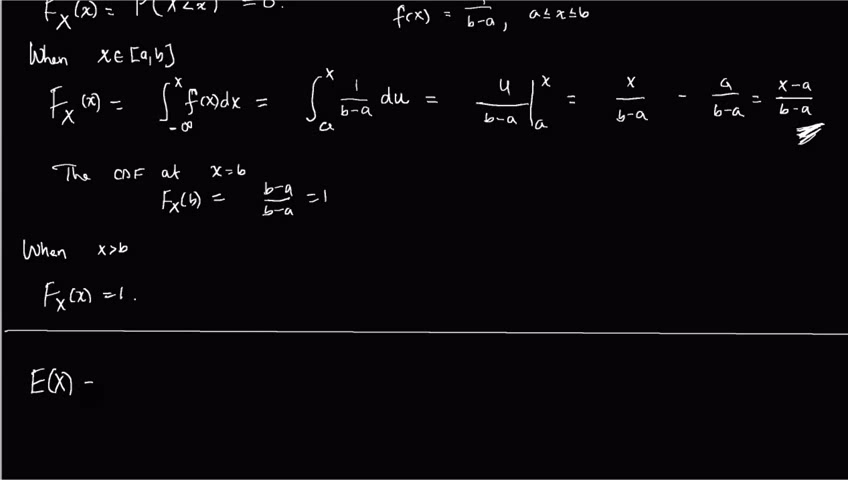 F_X(x) = P(X<x) = 0.
f(x) = 1/(b-a), a ≤ x ≤ b
When x ∈ [a,b]
F_X(x) = ∫_{-∞}^{x} f(x)dx = ∫_{a}^{x} 1/(b-a) du = u/(b-a) |_{a}^{x} = x/(b-a) - a/(b-a) = (x-a)/(b-a)
The CDF at x=b
F_X(b) = (b-a)/(b-a) = 1
When x>b
F_X(x) = 1.
E(X) -